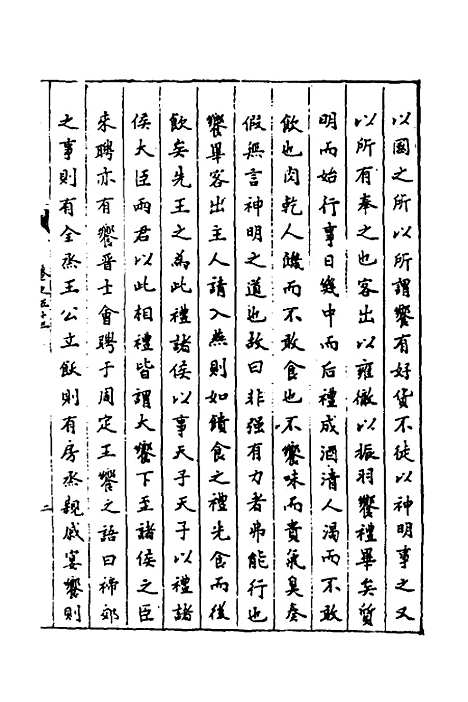 以國之所以所謂饗有好貨不徒以神明事之又
以所有奉之也客出以雍徹以振羽饗禮畢矣質
明而始行事日幾中而后禮成酒清人渴而不敢
飲也肉乾人饑而不敢食也不饗味而貴氣臭奏
假無言神明之道也故曰非强有力者弗能行也
饗畢客出主人請入燕則如饋食之禮先食而後
飲矣先王之為此禮諸侯以事天子天子以禮諸
侯大臣兩君以此相禮皆謂大饗下至諸侯之臣
來聘亦有饗晋士會聘于周定王饗之語曰禘郊
之事則有全烝王公立飫則有房烝親戚宴饗則
卷之五十三
二